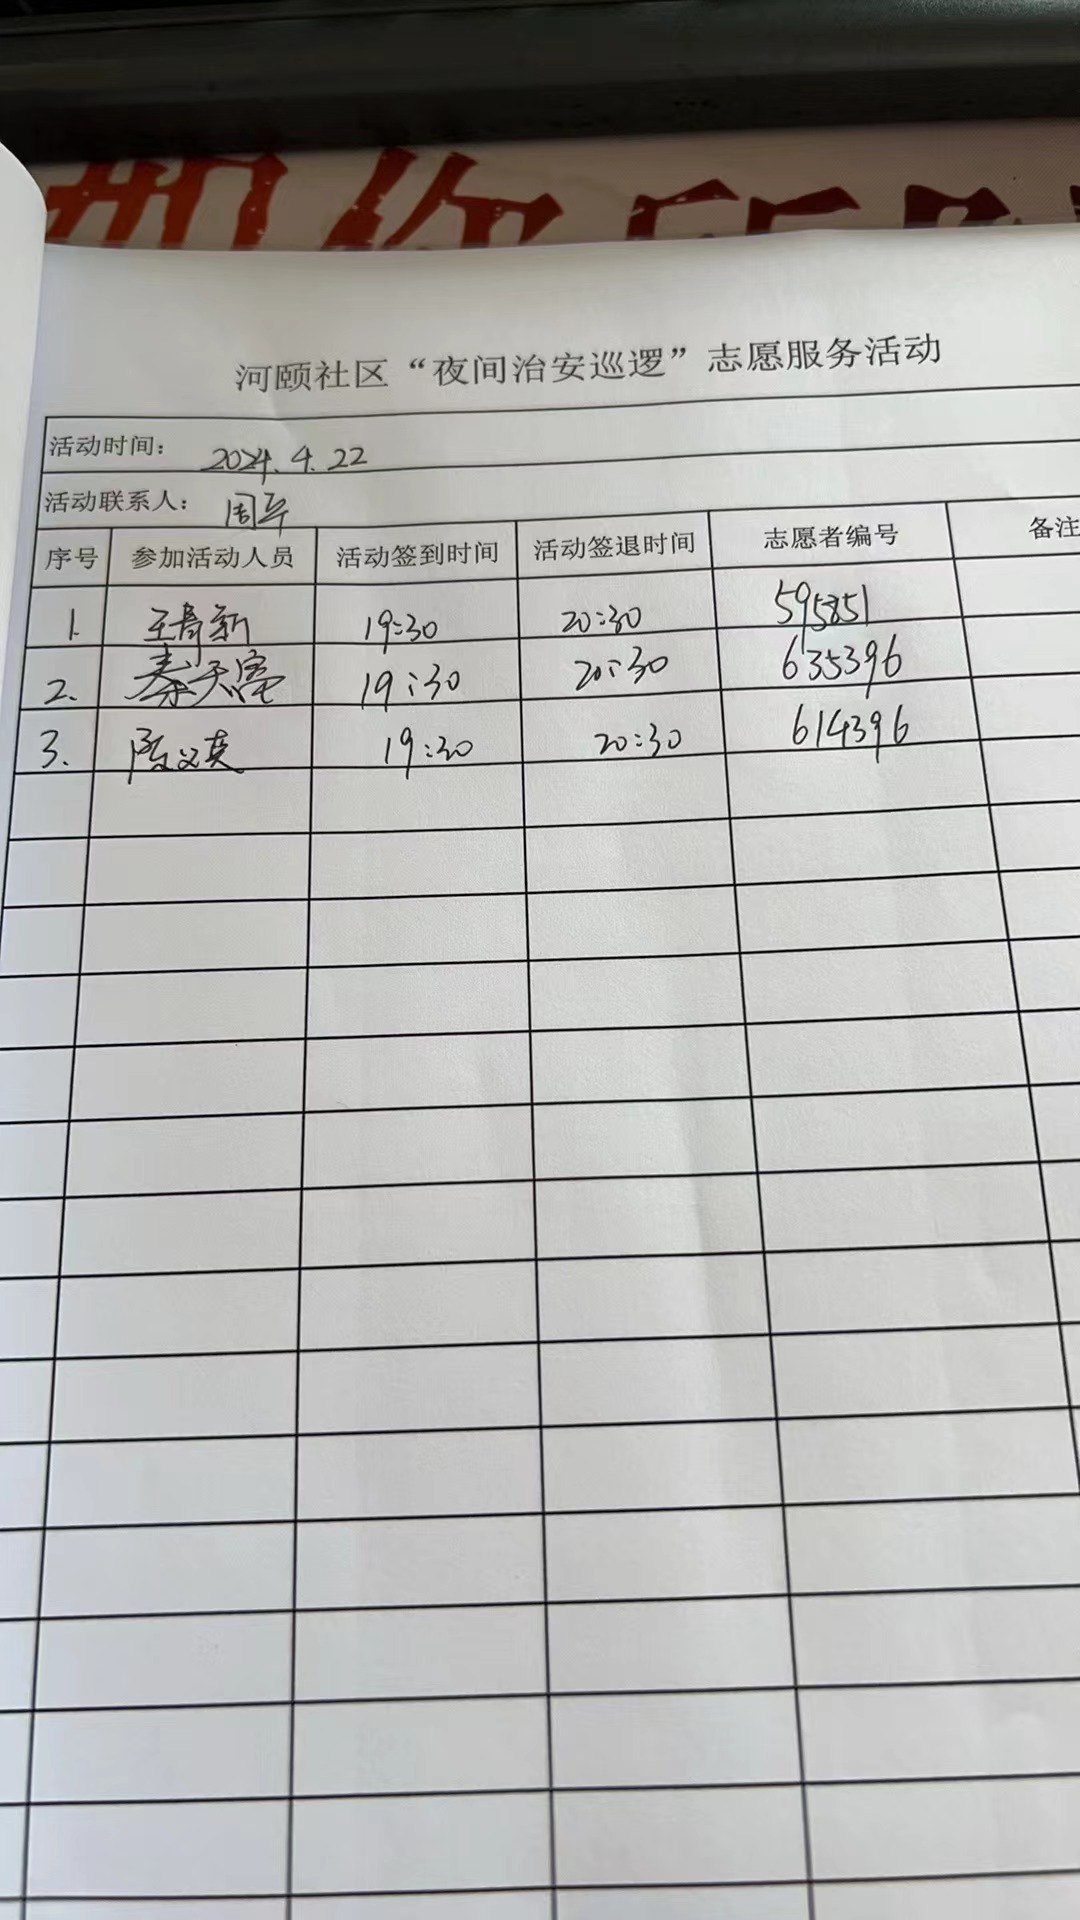 河颐社区“夜间治安巡逻”志愿服务活动
活动时间: 2024.4.22
活动联系人: 周平
序号 参加活动人员 活动签到时间 活动签退时间 志愿者编号 备注
1. 王青新 19:30 20:30 595851
2. 秦天容 19:30 20:30 635396
3. 陈义英 19:30 20:30 614396